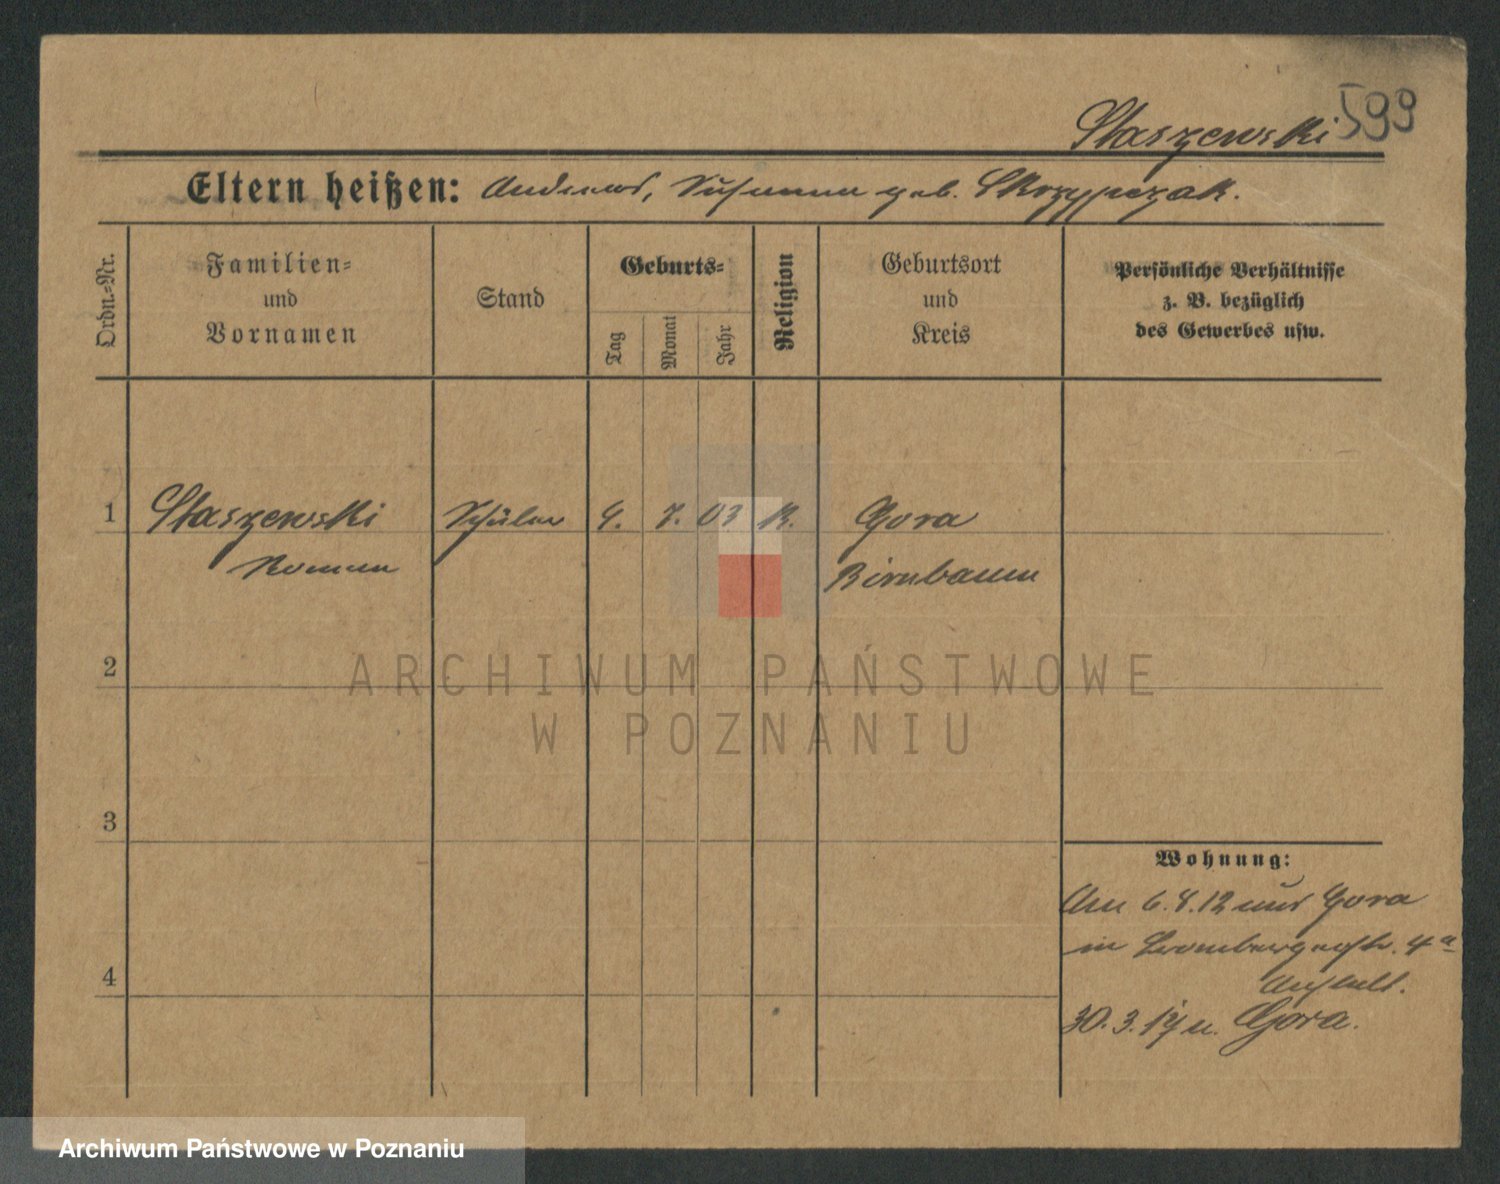 Staszewski 599
Eltern heißen: Andreas, Susanna geb. Skrzypczak.
Ordn.-Nr.
Familien-
und
Vornamen
Stand
Geburts-
Tag
Monat
Jahr
Religion
Geburtsort
und
Kreis
Persönliche Verhältnisse
z. B. bezüglich
des Gewerbes usw.
1 Staszewski Schüler 9. 7. 03 k. Gora
Roman Birnbaum
2
ARCHIWUM PAŃSTWOWE
W POZNANIU
3
Wohnung:
Am 6.8.12 aus Gora
in Brombergerstr. 4a
4
Anstalt.
30.3.14 n. Gora.
Archiwum Państwowe w Poznaniu